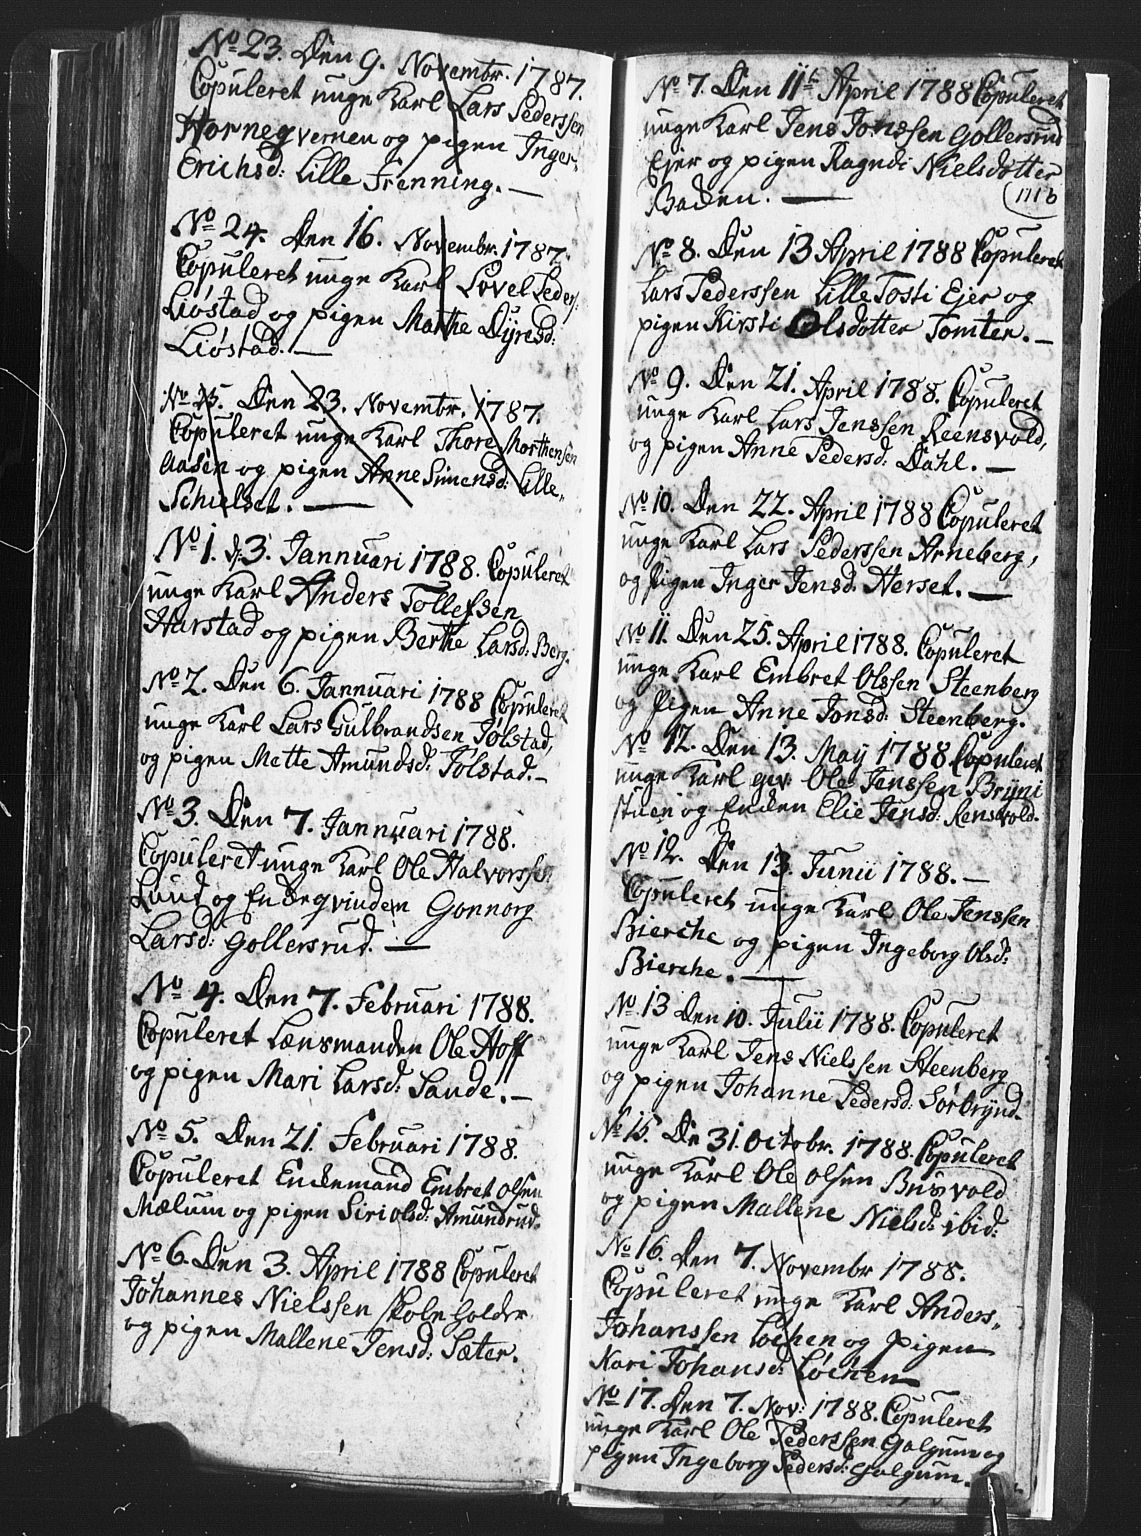 No 23. Den 9. Novembr. 1787.
Copuleret unge Karl Lars Pederssen
Hornegvernen og pigen Inger
Erichsd: Lille Frenning. —
No 24. Den 16. Novembr. 1787.
Copuleret unge Karl Lovel Peders:
Liøstad og pigen Marthe Dyresd:
Liøstad. —
No 25. Den 23. Novembr. 1787.
Copuleret unge Karl Thore Morthensen
Aasen og pigen Anne Simensd: Lille
Schielset. —
No 1. d: 3. Jannuari 1788. Copuleret
unge Karl Anders Tollefsen
Harstad og pigen Berthe Larsd: Berg.
No 2. Den 6. Jannuari 1788 Copuleret
unge Karl Lars Gulbrandsen Jølstad,
og pigen Mette Amundsd: Jølstad. —
No 3. Den 7. Jannuari 1788.
Copuleret unge Karl Ole Halvorssen
Lund og Endeqvinden Gonnorg
Larsd: Gollersrud. —
No 4. Den 7. Februari 1788.
Copuleret Lænsmanden Ole Hoff
og pigen Mari Larsd: Sande. —
No 5. Den 21. Februari 1788.
Copuleret Enckemand Embret Olsen
Mælum og pigen Siri Olsd: Amundrud.
No 6. Den 3. April 1788 Copuleret
Johannes Nielssen Skoleholder
og pigen Mallene Jensd: Sæter.
No 7. Den 11t April 1788 Copuleret
unge Karl Jens Jonssen Gollersrud
Ejer og pigen Ragndi Nielsdotter
Baden. —
111b
No 8. Den 13 April 1788 Copuleret
Lars Pederssen Lille Tosti Ejer og
pigen Kirsti Olsdotter Tomter. —
No 9. Den 21. April 1788. Copuleret
unge Karl Lars Jenssen Reensvold,
og pigen Anne Pedersd: Dahl. —
No 10. Den 22. April 1788 Copuleret
unge Karl Lars Pederssen Arneberg,
og pigen Inger Jensd: Herset. —
No 11. Den 25. April 1788. Copuleret
unge Karl Embret Olssen Steenberg
og Pigen Anne Jonsd: Steenberg.
No 12. Den 13. Maij 1788 Copuleret
unge Karl gev: Ole Jenssen Bryni
stuen og Enken Elie Jensd: Rensvold.
No 12. Den 13. Junii 1788. —
Copuleret unge Karl Ole Jenssen
Bierche og pigen Ingeborg Olsd:
Bierche. —
No 13 Den 10. Julii 1788. Copuleret
unge Karl Jens Nielssen Steenberg
og pigen Johanne Pedersd: Sørbrynd.
No 15. De 31. Octobr. 1788. Copuleret
unge Karl Ole Olsen Brisvold
og pigen Mallene Nielsd: ibid:
No 16. Den 7. Novembr 1788.
Copuleret unge Karl Anders
Johanssen Løchen og Pigen
Kari Johansd: Løchen —
No 17. Den 7. Nov: 1788. Copuleret
unge Karl Ole Pederssen Galgum og
pigen Ingeborg Pedersd: Galgum.